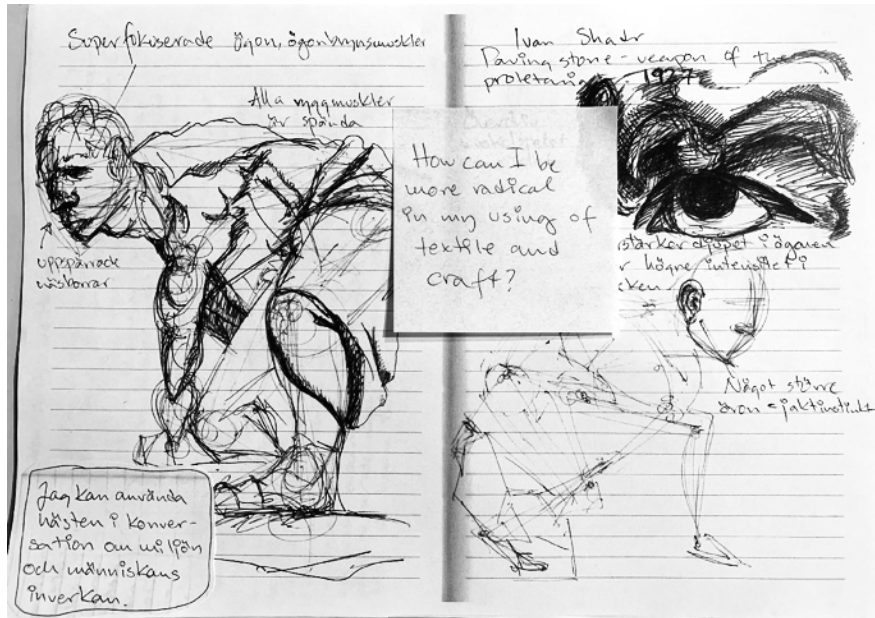 Superfokuserade ögon, ögonbrynsmuskler
Alla ryggmuskler
är spända
uppspärrade
näsborrar
Jag kan använda
hästen i konver-
sation om miljön
och människans
inverkan.
How can I be
more radical
in my using of
textile and
craft?
Ivan Shadr
Paving stone - weapon of the
proletaria 1927
stärker djupet i ögonen
r högre intensitet i
cken
Något större
öron = jaktinstinkt